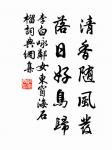 清香隨風發
落日好鳥歸
李白咏鄰女東窗海石
榴詞典網集